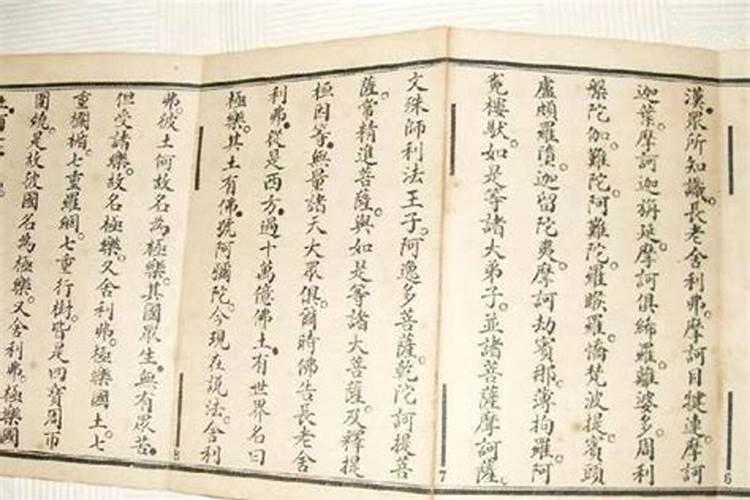 漢。眾所知識。長老舍利弗。摩訶目犍連。摩訶
迦葉。摩訶迦旃延。摩訶俱絺羅。離婆多。周利
槃陀伽。難陀。阿難陀。羅睺羅。憍梵波提。賓頭
盧頗羅隨。迦留陀夷。摩訶劫賓那。薄拘羅。阿
㝹樓馱。如是等諸大弟子。並諸菩薩摩訶薩。
文殊師利法王子。阿逸多菩薩。乾陀訶提菩
薩。常精進菩薩。與如是等諸大菩薩。及釋提
桓因等。無量諸天大眾俱。爾時佛告長老舍
利弗。從是西方。過十萬億佛土。有世界名曰
極樂。其土有佛。號阿彌陀。今現在說法。舍利
弗。彼土何故名為極樂。其國眾生。無有眾苦。
但受諸樂。故名極樂。又舍利弗。極樂國土。七
重欄楯。七重羅網。七重行樹。皆是四寶周帀
圍繞。是故彼國名為極樂。又舍利弗。極樂國
6
7
8